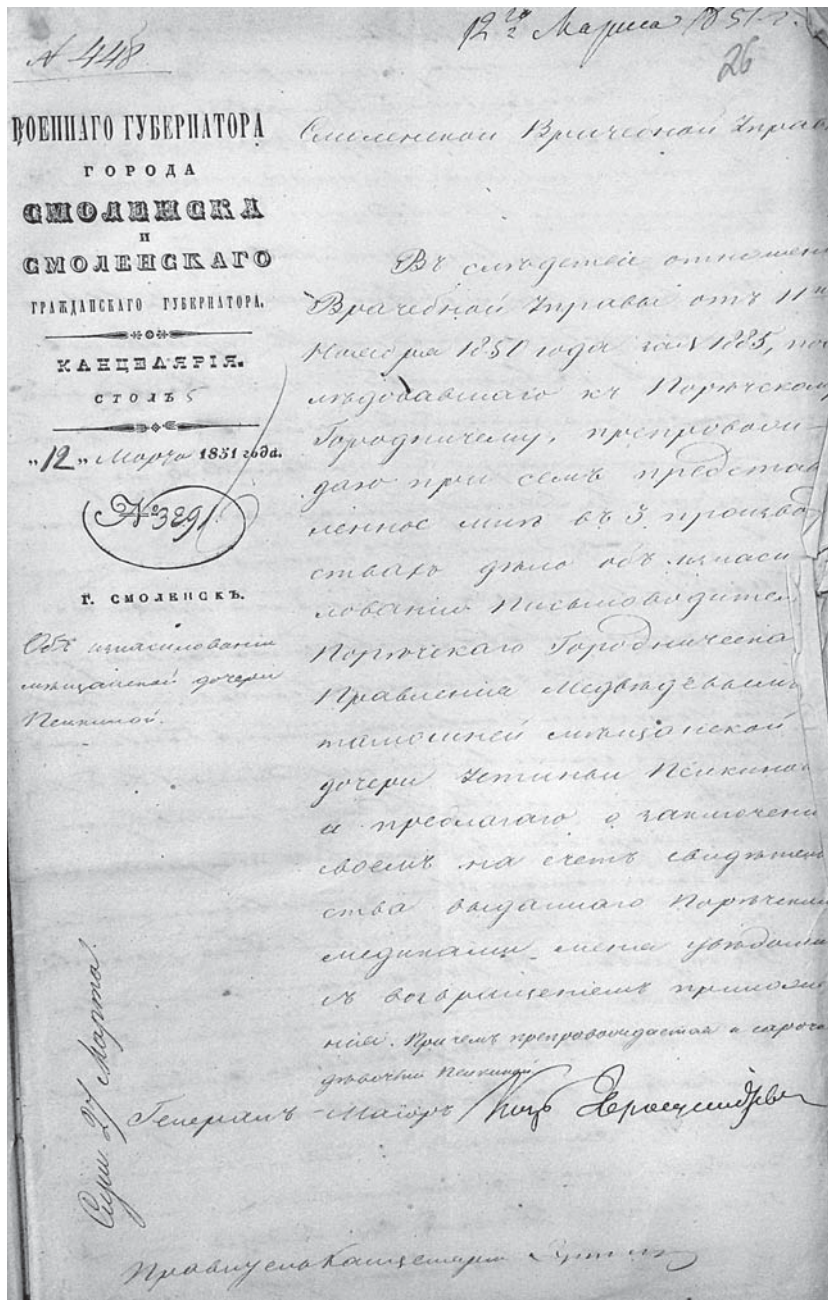 12го Марта 1851 г.
№ 448
26
ВОЕННАГО ГУБЕРНАТОРА
ГОРОДА
СМОЛЕНСКА
И
СМОЛЕНСКАГО
ГРАЖДАНСКАГО ГУБЕРНАТОРА.
КАНЦЕЛЯРІЯ.
СТОЛЪ 5
„12„ Марта 1851 года.
№ 3291
Г. СМОЛЕНСКЪ.
Объ изнасилованіи
мѣщанской дочери
Смоленской Врачебной Управѣ
Въ слѣдствіе отношенія
Врачебной Управы отъ 11го
Ноября 1850 года за № 1885, пос
лѣдовавшаго къ Порѣчскому
Городничему, препровож
даю при семъ представ
ленное мнѣ въ 3 производ
ствахъ дѣло объ изнаси
лованіи Письмоводителемъ
Порѣчскаго Городническаго
Правленія Медвѣдевымъ
тамошней мѣщанской
дочери Устиньи
и предлагаю о заключеніи
своемъ на счетъ свидѣтель
ства выданнаго Порѣчскими
медиками меня увѣдомить
съ возвращеніемъ приложе
нія. Причемъ препровождается и сорочка
дѣвочки
Генералъ-Маіоръ
Правитель Канцеляріи
27 Марта.